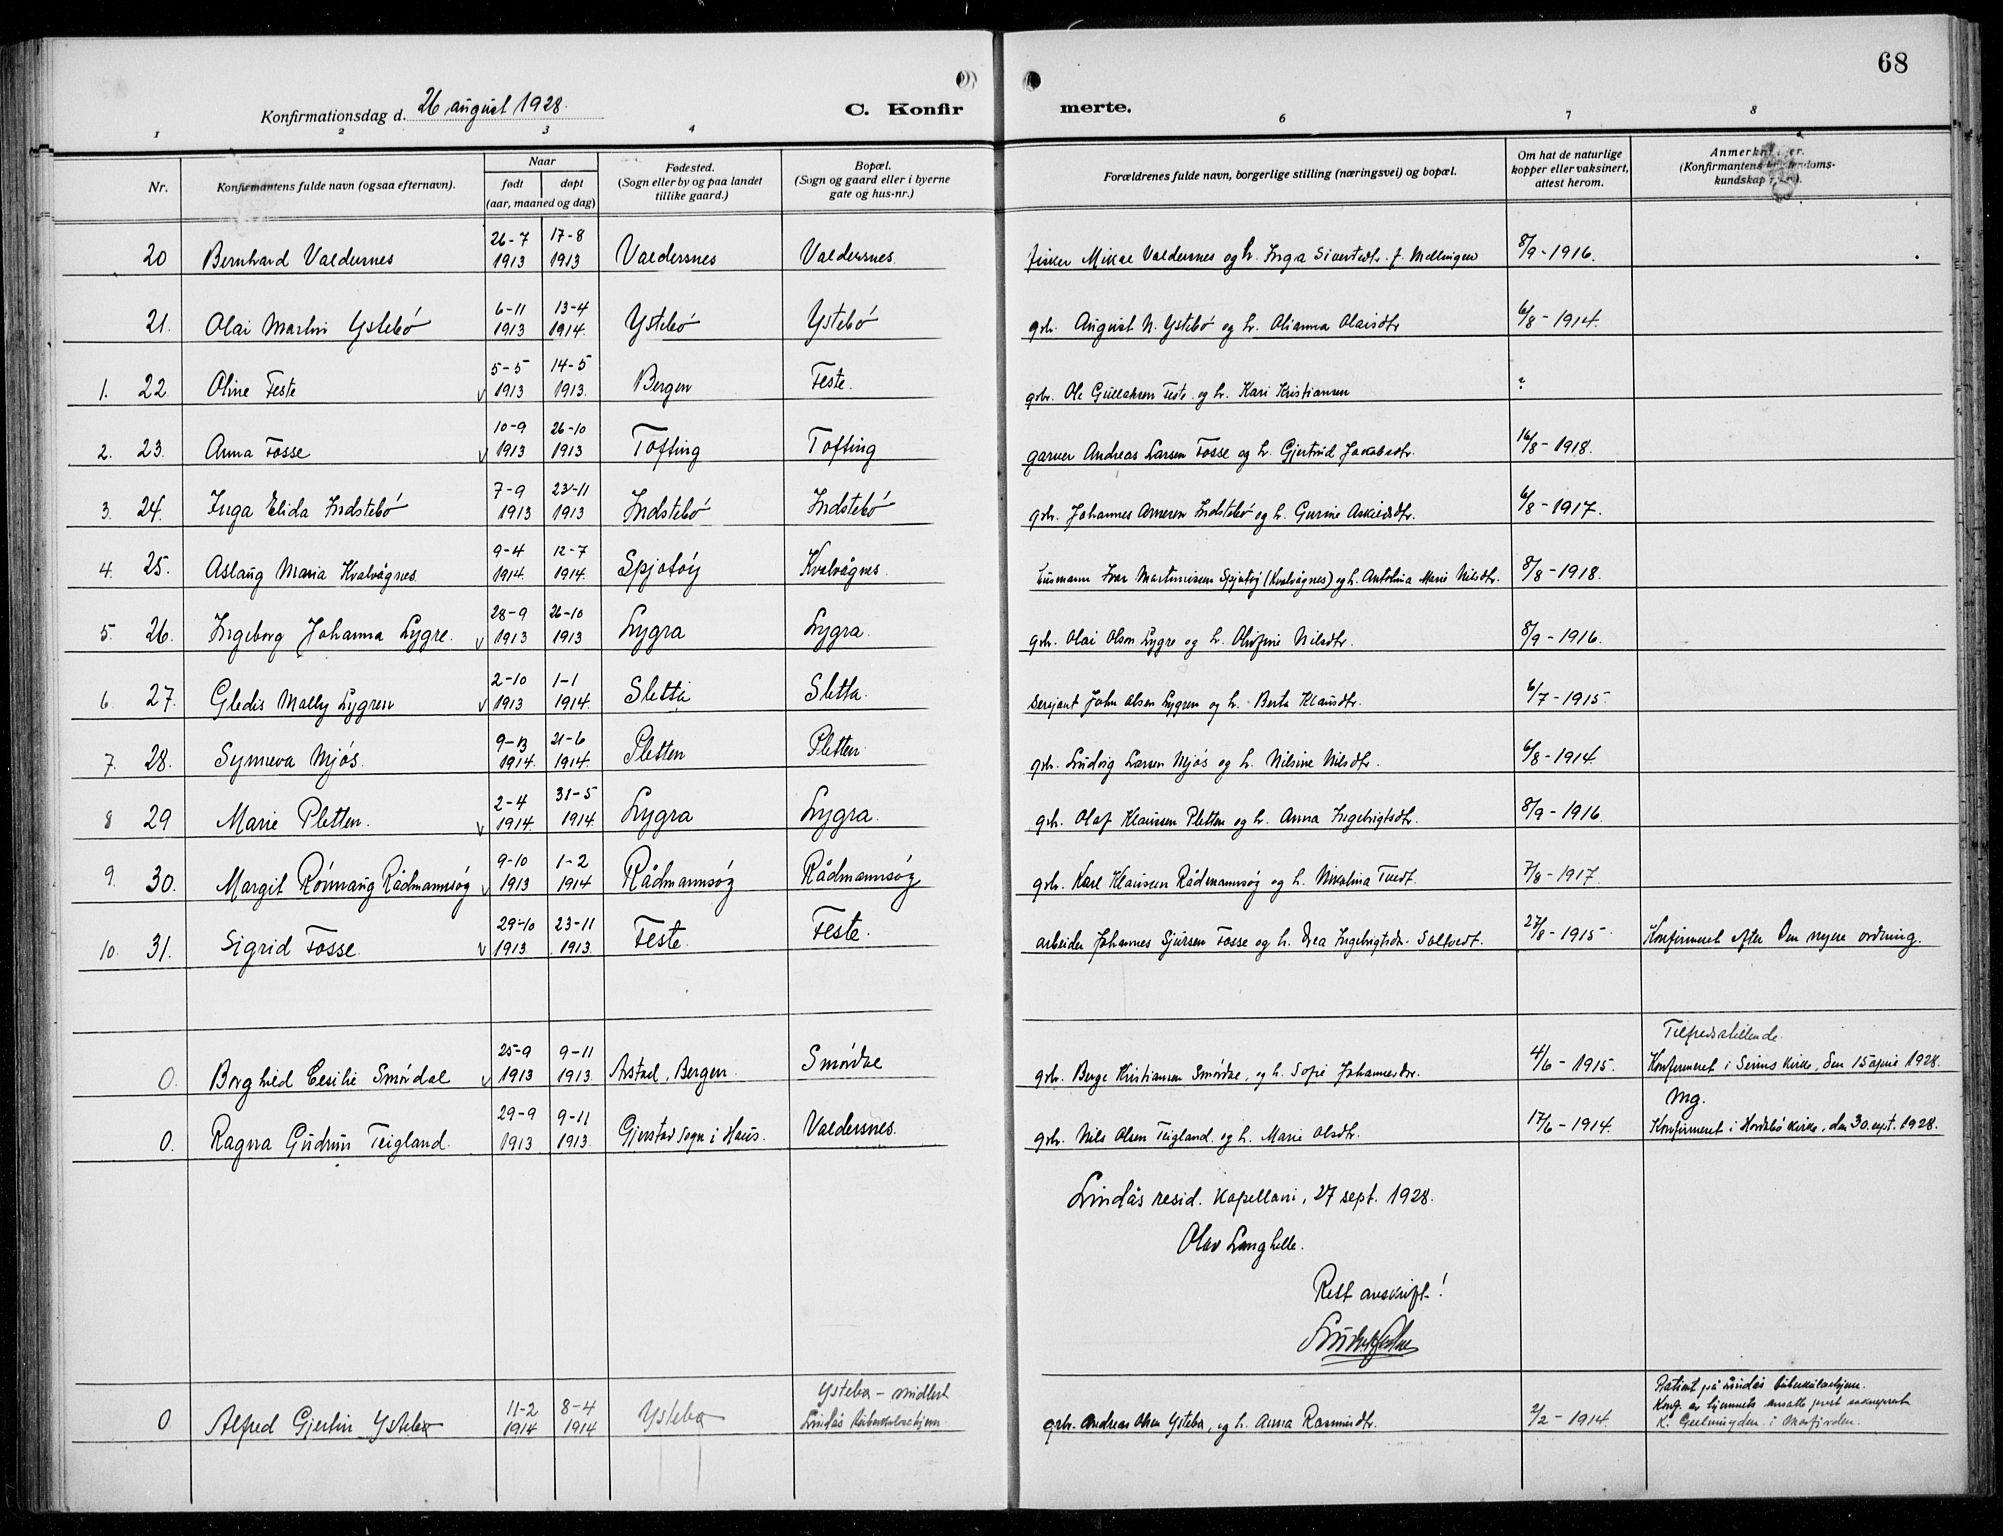 68
Konfirmationsdag d. 26 august 1928.
C. Konfirmerte.
1 2 3 4 6 7 8
Nr.
Konfirmantens fulde navn (ogsaa efternavn).
Naar
født døpt
(aar, maaned og dag)
Fødested.
(Sogn eller by og paa landet
tillike gaard.)
Bopæl.
(Sogn og gaard eller i byerne
gate og hus-nr.)
Forældrenes fulde navn, borgerlige stilling (næringsvei) og bopæl.
Om hat de naturlige
kopper eller vaksinert,
attest herom.
20 Bernhard Valdersnes 26-7 1913 17-8 1913 Valdersnes Valdersnes. fisker Mikal Valdersnes og h. Inga Sivertsdtr. f. Mellingen 8/9-1916.
21. Olai Martin Ystebó 6-11 1913 13-4 1914. Ystebó Ystebó grb. August N. Ystebó og h. Olianna Olaisdtr 6/8-1914.
1. 22 Oline Feste v 5-5 1913 14-5 1913. Bergen Feste. grbr. Ole Gullaksen Feste og h. Kari Kristiansen ?
2. 23. Anna Fosse v 10-9 1913 26-10 1913 Tofting Tofting garver Andreas Larsen Fosse og h. Gjertrud Jakobsdtr. 16/8-1918.
3. 24. Inga Elida Indstebó 7-9 1913 23-11 1913 Indstebó Indstebó grb. Johannes Arnesen Indstebó og h. Gurine Askildsdtr. 6/8-1917.
4. 25. Aslaug Maria Kvalvågnes. 9-4 1914. 12-7 1914. Spjotøy Kvalvågnes. husmann Ivar Martinussen Spjotøy (Kvalvågnes) og h. Antolina Marie Nilsdtr. 8/8-1918.
5. 26. Ingeborg Johanna Lygre. v 28-9 1913 26-10 1913 Lygra Lygra. grb. Olai Olson Lygre og h. Olufine Nilsdtr. 8/9-1916.
6. 27. Gledis Mally Lygren v 2-10 1913 1-1 1914. Sletta Sletta. sersjant John Olsen Lygren og h. Berta Klausdtr. 6/7-1915
7. 28. Synneva Mjós. 1914. 21-6 1914. Pletten Pletten grb. Ludvig Larsen Mjós og h. Nilsine Nilsdtr. 6/8-1914.
8 29 Marie Pletten. v 2-4 1914. 31-5 1914. Lygra Lygra. grb. Olaf Klaussen Pletten og h. Anna Ingebrigtsdtr. 8/9-1916.
9. 30. Margit Rónnaug Rådmannsøy v 9-10 1913 1-2 1914 Rådmannsøy Rådmannsøy grb. Karl Klaussen Rådmannsøy og h. Nikolina Tvedt. 7/8-1917.
10. 31. Sigrid Fosse. v 29-10 1913 23-11 1913. Feste. Feste. arbeider Johannes Sjursen Fosse og h. Dea Ingebrigtsdtr. Soltvedt. 27/8-1915 Konfirmert efter den nyere ordning.
0. Borghild Cesilie Smórdal v 25-9 1913 9-11 1913. Årstad, Bergen. Smórdal grb. Berge Kristiansen Smórdal, og h. Sofie Johannesdtr. 4/6-1915. Tilfredsstillende.
Konfirmeret i Seims kirke, den 15 april 1928.
0. Ragna Gudrun Teigland. 29-9 1913 9-11 1913. Gjerstad sogn i Haus. Valdersnes. grb. Nils Olsen Teigland og h. Marie Olsdtr. 17/6-1914. Mg.
Konfirmeret i Hordabó kirke, den 30 sept. 1928.
Lindås resid. kapellani, 27 sept. 1928.
Olav Langhelle.
Rett avskrift!
0 Alfred Gjertin Ystebø 11-2 1914 8-4 1914 Ystebø Ystebø - midlert
Lindås tuberkulosehjem. grb. Andreas Olsen Ystebø, og h. Anna Rasmusdtr. 2/2-1914. Patient på Lindås tuberkulosehjem.
Konf. av hjemmets ansatte prest sokneprest
K. Geelmuyden i Masfjorden.